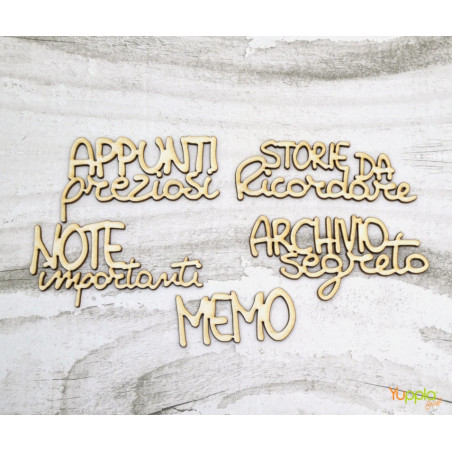 APPUNTI
preziosi
STORIE DA
Ricordare
NOTE
importanti
ARCHIVIO
segreto
MEMO
Yuppla